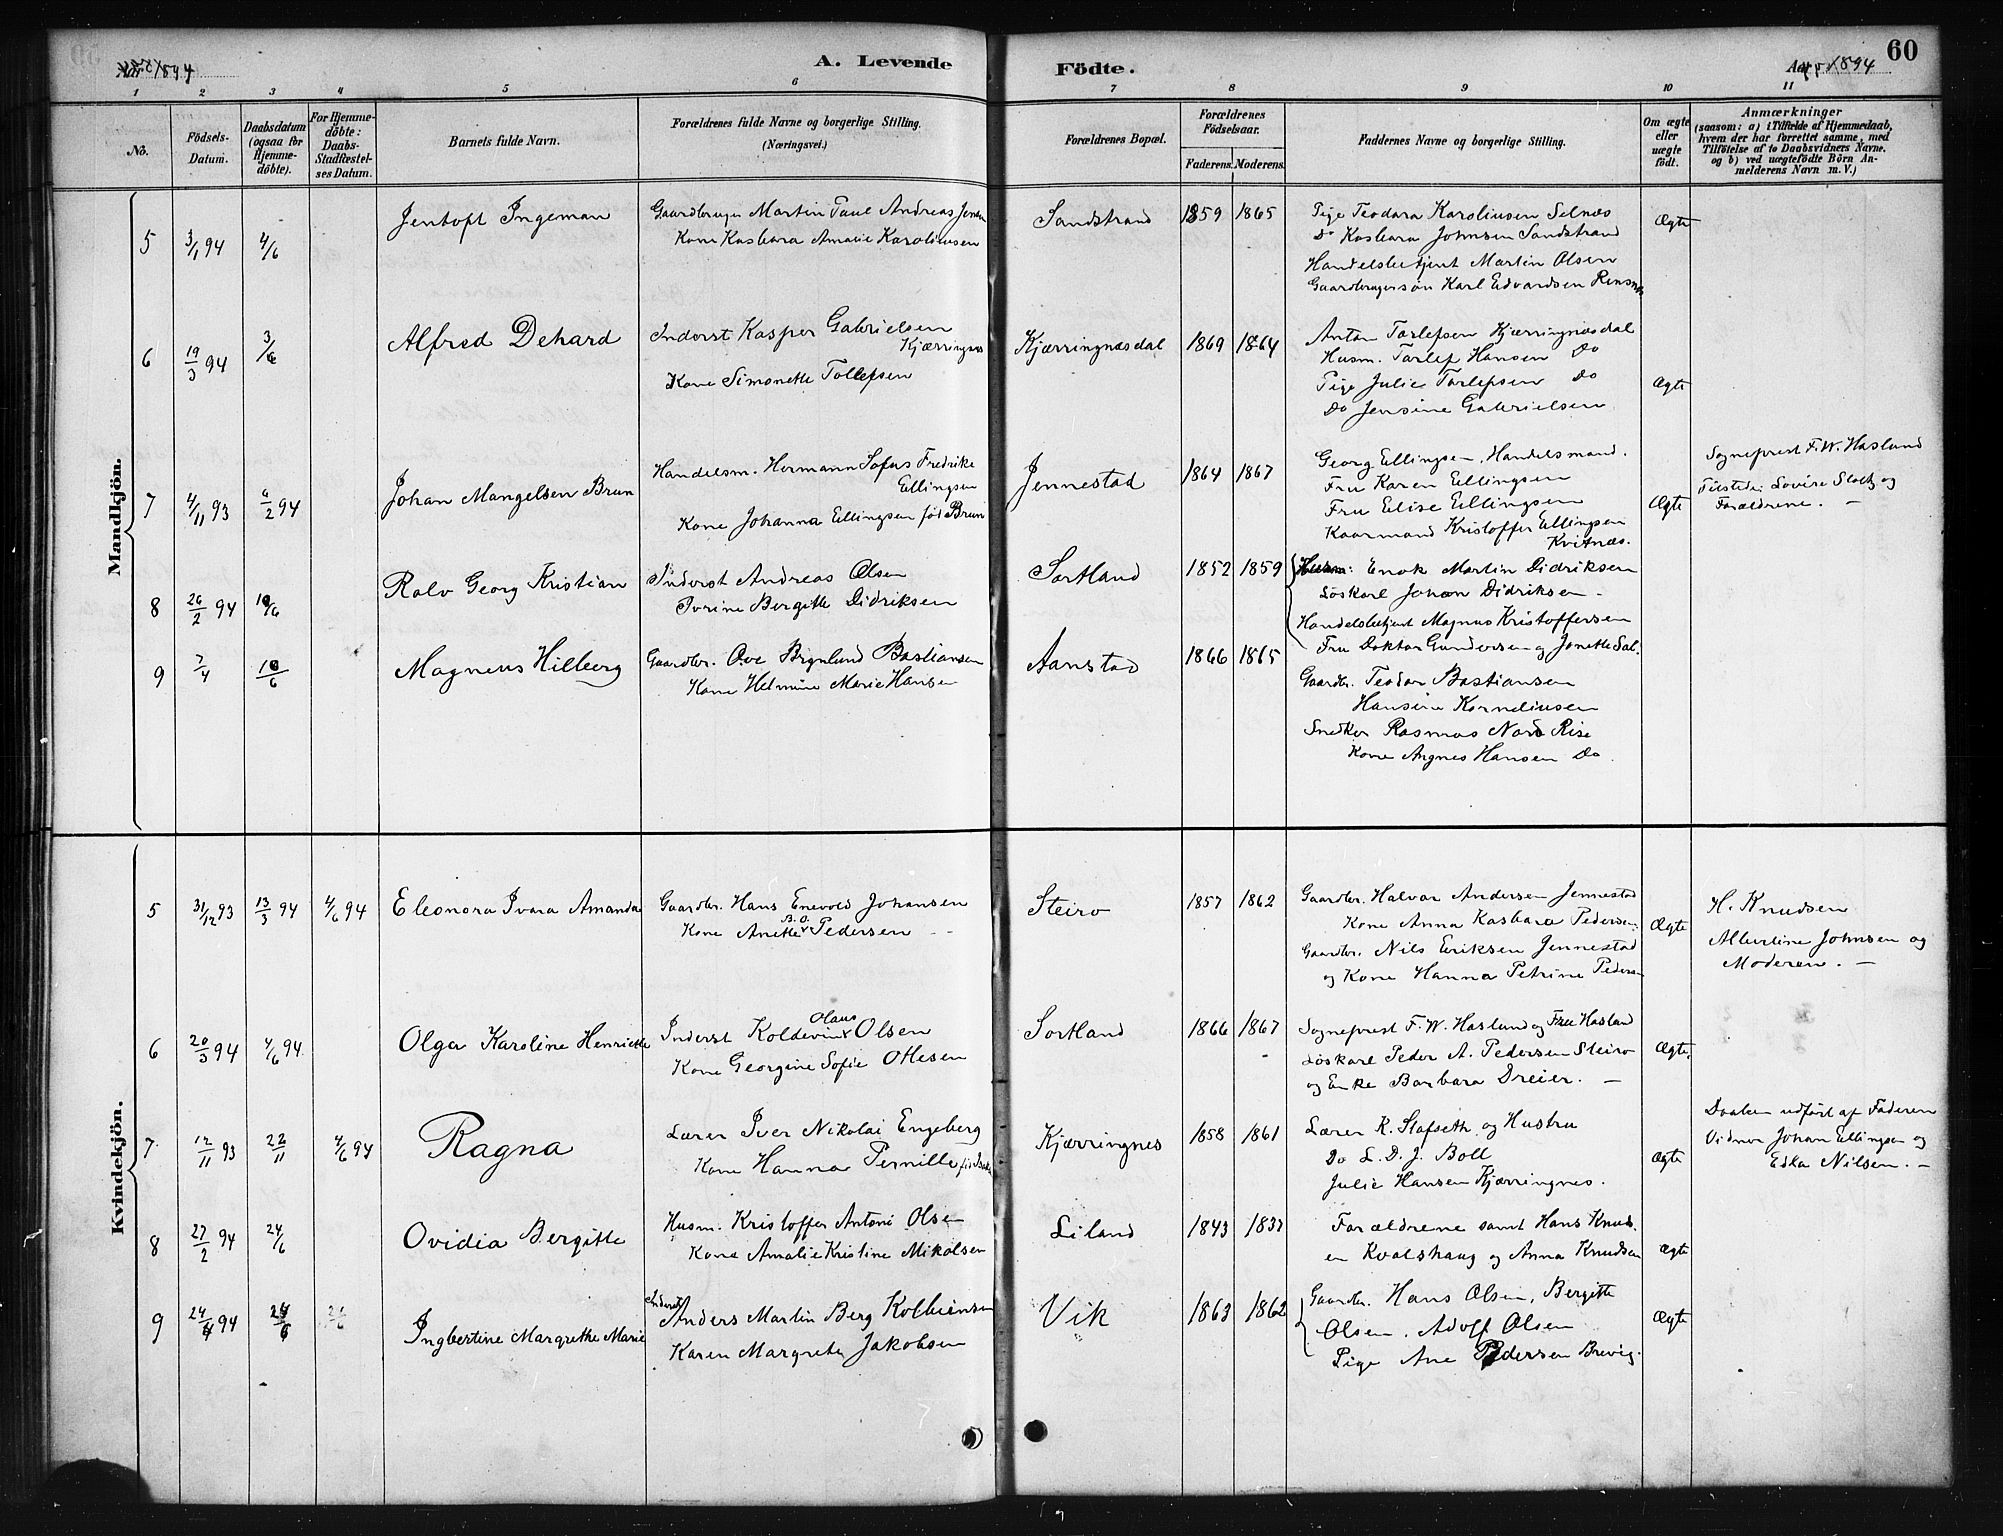 Aar 1894 A. Levende Födte. Aar 1894 60
1 2 3 4 5 6 7 8 9 10 11
No.
Födsels-Datum.
Daabsdatum (ogsaa för Hjemmedöbte).
For Hjemmedöbte: Daabs-Stadfæstelses Datum.
Barnets fulde Navn.
Forældrenes fulde Navne og borgerlige Stilling. (Næringsvei.)
Forældrenes Bopæl.
Forældrenes Födselsaar.
Faderens. Moderens.
Faddernes Navne og borgerlige Stilling.
Om ægte eller uægte födt.
Anmærkninger
(saasom: a) i Tilfælde af Hjemmedaab, hvem der har forrettet samme, med Tilföielse af to Daabsvidners Navne, og b) ved uægtefödte Börn Anmelderens Navn m. V.)
Mandkjön.
5 3/1 94 4/6 Jentoft Ingeman
Gaardbruger Martin Paul Andreas Jensen
Kone Kasbara Amalie Karoliusen
Sandstrand 1859 1865
Pige Teodora Karoliusen Selnæs
Do Kasbara Johnsen Sandstrand
Handelsbetjent Martin Olsen
Gaardbrugersön Karl Edvardsen Rensnæs
Ægte
6 19/3 94 3/6 Alfred Dehard
Inderst Kasper Gabrielsen
Kjærringnes
Kone Simonette Tollefsen
Kjærringnæsdal 1869 1864
Anton Tarlefsen Kjærringnæsdal
Husm. Tarlef Hansen Do
Pige Julie Tarlefsen Do
Do Jensine Gabrielsen
Ægte
7 4/11 93 6/2 94 Johan Mangelsen Brun
Handelsm. Hermann Sofus Fredrike
Ellingsen
Kone Johanna Ellingsen föd Brun
Jennestad 1864 1867
Georg Ellingsen, Handelsmand.
Fru Karen Ellingsen
Fru Elise Ellingsen
Kaarmand Kristoffer Ellingsen
Kvitnæs.
Ægte
Sogneprest F. W. Hasland
Tilstede: Lovise Sloltz og
Forældrene. —
8 26/2 94 10/6 Rolv Georg Kristian
Inderst Andreas Olsen
Ivrine Bergitte Didriksen
Sortland 1852 1859
Husm: Enok Martin Didriksen
Löskarl Johan Didriksen -
Handelsbetjent Magnus Kristoffersen
Fru Doktor Gundersen og Jonette Sal.
9 7/4 10/6 Magneus Hilberg
Gaardbr. Ove Brynlund Bastiansen
Kone Helmine Marie Hansen
Aanstad 1866 1865
Gaardbr. Teodor Bastiansen
Hansine Korneliusen
Snedker Rasmus Nord Rise
Kone Angnes Hansen Do
Kvindekjön.
5 31/12 93 13/3 94 4/6 94 Eleonora Ivara Amanda
Gaardbr. Hans Enevold Johansen
Kone Anette B.O. Pedersen
Steiro 1857 1862
Gaardbr. Halvar Andersen Jennestad
Kone Anna Kasbara Pedersen:
Gaardbr. Nils Eriksen Jennestad
og Kone Hanna Petrine Pedersen
Ægte
H. Knudsen
Albertine Johnsen og
Moderen. —
6 20/3 94 4/6 94 Olga Karoline Henriette
Inderst Koldevin Olaus Olsen
Kone Georgine Sofie Ottesen
Sortland 1866 1867
Sogneprest F. W. Hasland og Fru Hasland
Löskarl Peder A. Pedersen Steiro
og Enke Barbara Dreier. —
Ægte.
7 12/11 93 22/11 4/6 94 Ragna
Lærer Iver Nikolai Engeberg
Kone Hanna Pernille föd
Kjærringnes 1858 1861
Lærer K. Slafseth og Hustru
Do L. D. J. Boll
Julie Hansen Kjærringnes.
Ægte
Daaben udfört af Faderen
Vidner Johan Ellingsen og
Edka Nilsen. —
8 27/2 94 24/6 Ovidia Bergitte
Husm. Kristoffer Antoni Olsen
Kone Amalie Kristine Mikolsen
Liland 1843 1837
Forældrene samt Hans Knuds.
en Kvalshaug og Anna Knudsen
Ægte
9 24/4 94 24/6 24/6 Ingbertine Margrethe Marie
Inderst Anders Martin Berg Kolbiensen
Karen Margrete Jakobsen
Vik 1863 1862
Gaardbr. Hans Olsen, Bergitte
Olsen. Adolf Olsen
Pige Ane Pedersen Brevig.
Ægte